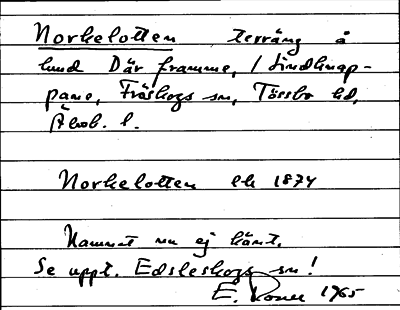 Norkelotten terräng å
lund Där framme, / Lindknap-
pane, Fröskogs sn, Tössbo hd,
Älvsb. l.
Norkelotten ek 1874
Namnet nu ej känt.
Se uppt. Edsleskogs sn!
E. 1965